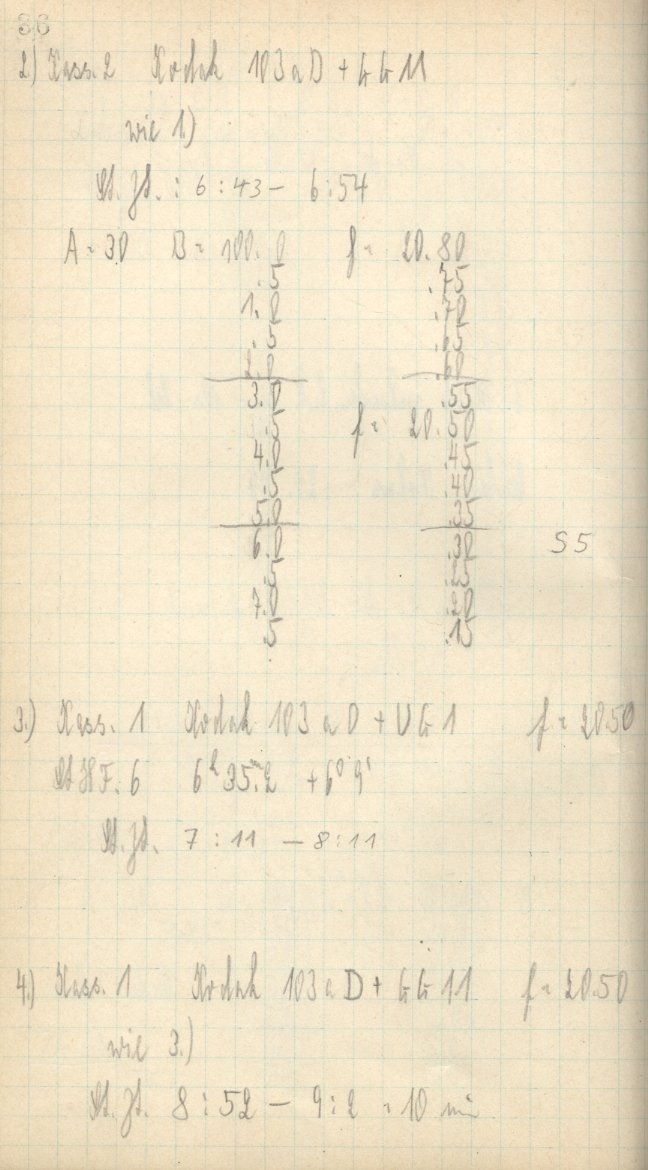 36
2.) Kass. 2 Kodak 103 a D + GG 11
wie 1.)
St. Zt. : 6 : 43 – 6 : 54
A = 30 B = 100. 0 f = 20. 80
.5 .75
1. 0 .70
.5 .65
2.0 .60
3.0 .55
.5 f = 20. 50
4.0 .45
.5 .40
5.0 .35
6.0 .30 S5
.5 .25
7.0 .20
.5 .15
3.) Kass. 1 Kodak 103 a D + UG 1 f = 20.50
6 6h 35m.2 + 6° 9'
St. Zt. 7 : 11 – 8 : 11
4.) Kass. 1 Kodak 103 a D + GG 11 f = 20.50
wie 3.)
St. Zt. 8 : 52 – 9 : 2 = 10 min